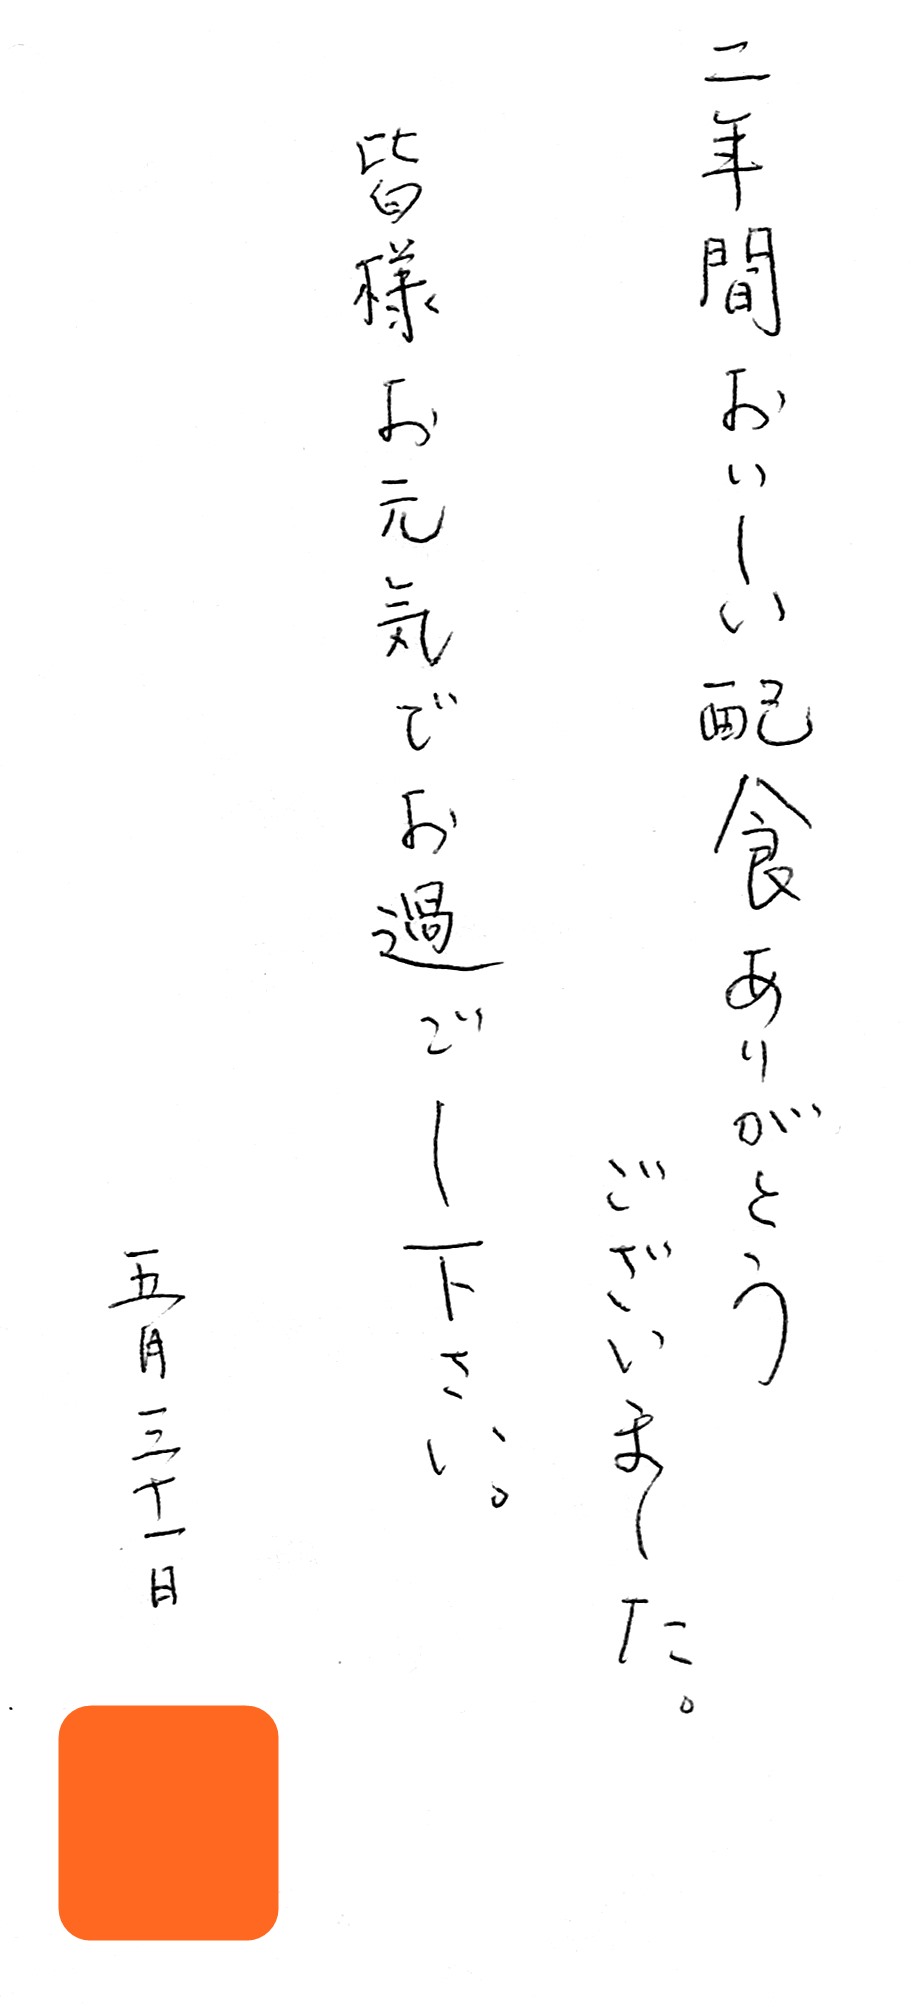 二年間おいしい配食ありがとう
ございました。
皆様お元気でお過ごし下さい。
五月三十一日